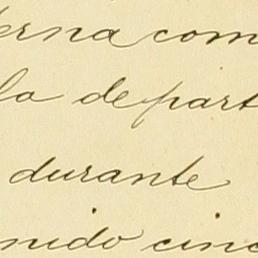 erna com
la de part
durante
nido cinc